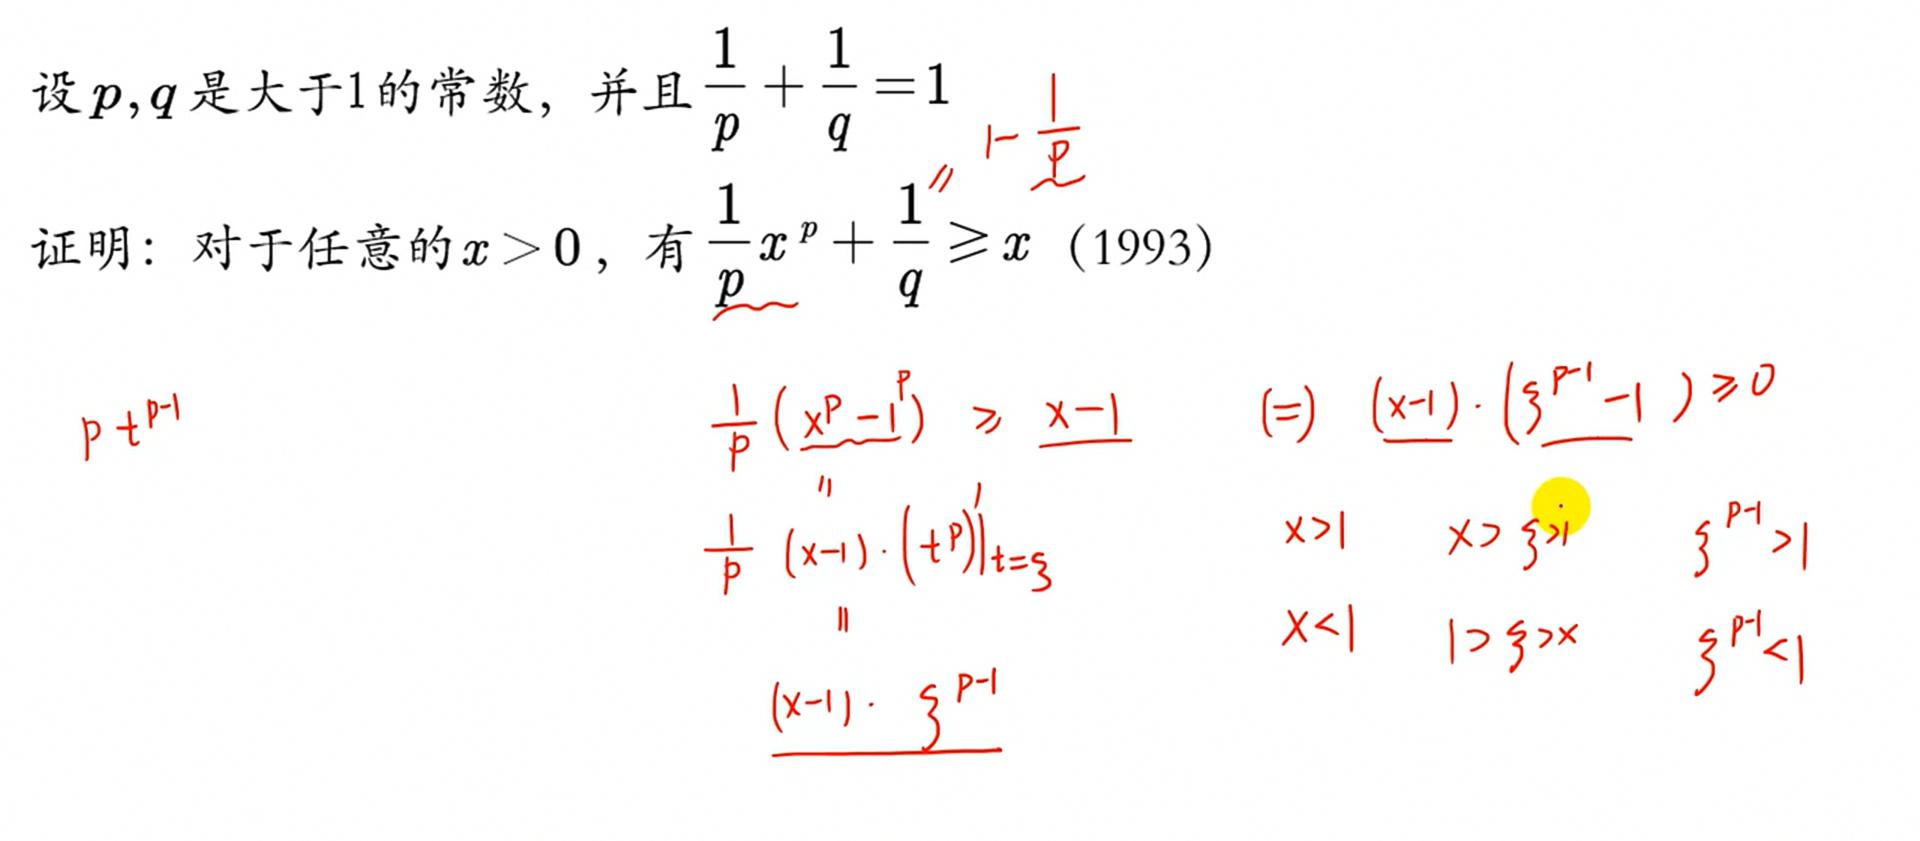 设p,q是大于1的常数，并且1/p+1/q=1
1-1/p
证明：对于任意的x>0，有1/p x^p+1/q≥x（1993）
pt^(p-1)
1/p(x^p-1^p)≥x-1 (=) (x-1)·(ξ^(p-1)-1)≥0
=
1/p(x-1)·(t^p)'|t=ξ x>1 x>ξ>1 ξ^(p-1)>1
= x<1 1>ξ>x ξ^(p-1)<1
(x-1)·ξ^(p-1)